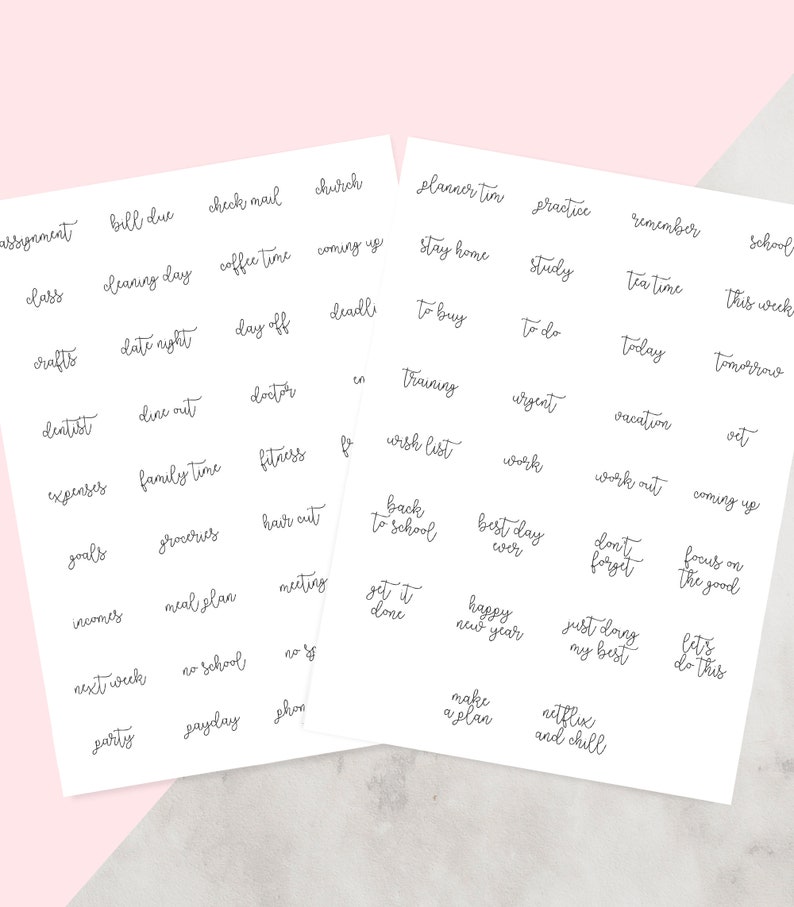 assignment bill due check mail church
class cleaning day coffee time coming up
crafts date night day off deadli
dentist dine out doctor en
expenses family time fitness
goals groceries hair cut
incomes meal plan meeting
next week no school no s
party payday phon
planner tim practice remember school
stay home study tea time this week
to buy to do today tomorrow
training urgent vacation vet
wish list work work out coming up
back
to school
best day
ever
don't
forget
focus on
the good
get it
done
happy
new year
just doing
my best
let's
do this
make
a plan
netflix
and chill